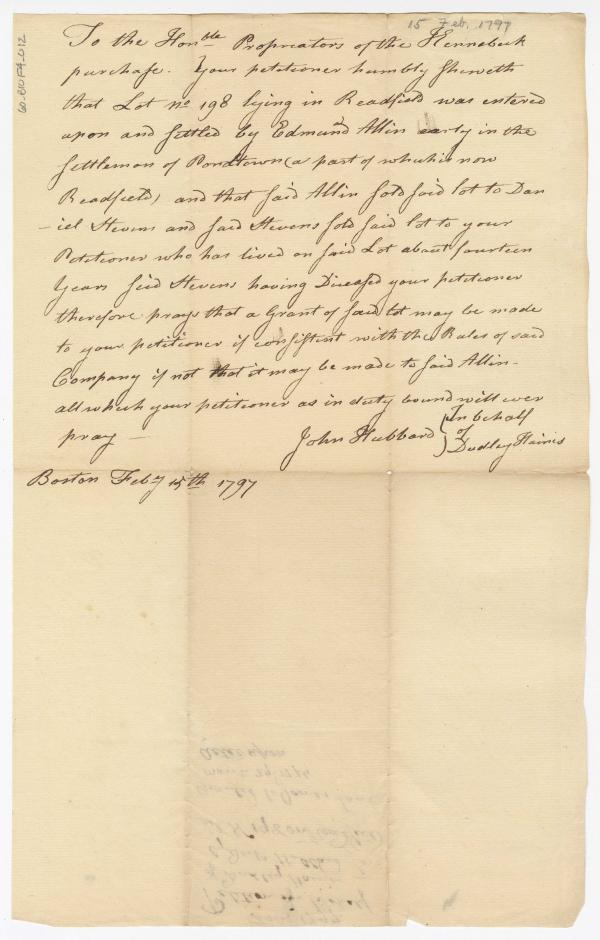 15 Feb. 1797
To the Honble Propriators of the Kennebeck
purchase. Your petitioner humbly Sheweth
that Lot no 198 lying in Readfield was entered
upon and settled by Edmund Allin early in the
settlemon of Pondtown (a part of which is now
Readfield) and that said Allin sold said lot to Dan
-iel Stevens and said Stevens sold said lot to your
Petitioner who has lived on said Lot about fourteen
years said Stevens having Diseased your petitioner
therefore prays that a Grant of said lot may be made
to your petitioner if consistent with the Rules of said
Company if not that it may be made to said Allin-
all which your petitioner as in duty bound will ever
pray — John Hubbard { in behalf
of
Dudley Hains
Boston Feby 15th 1797